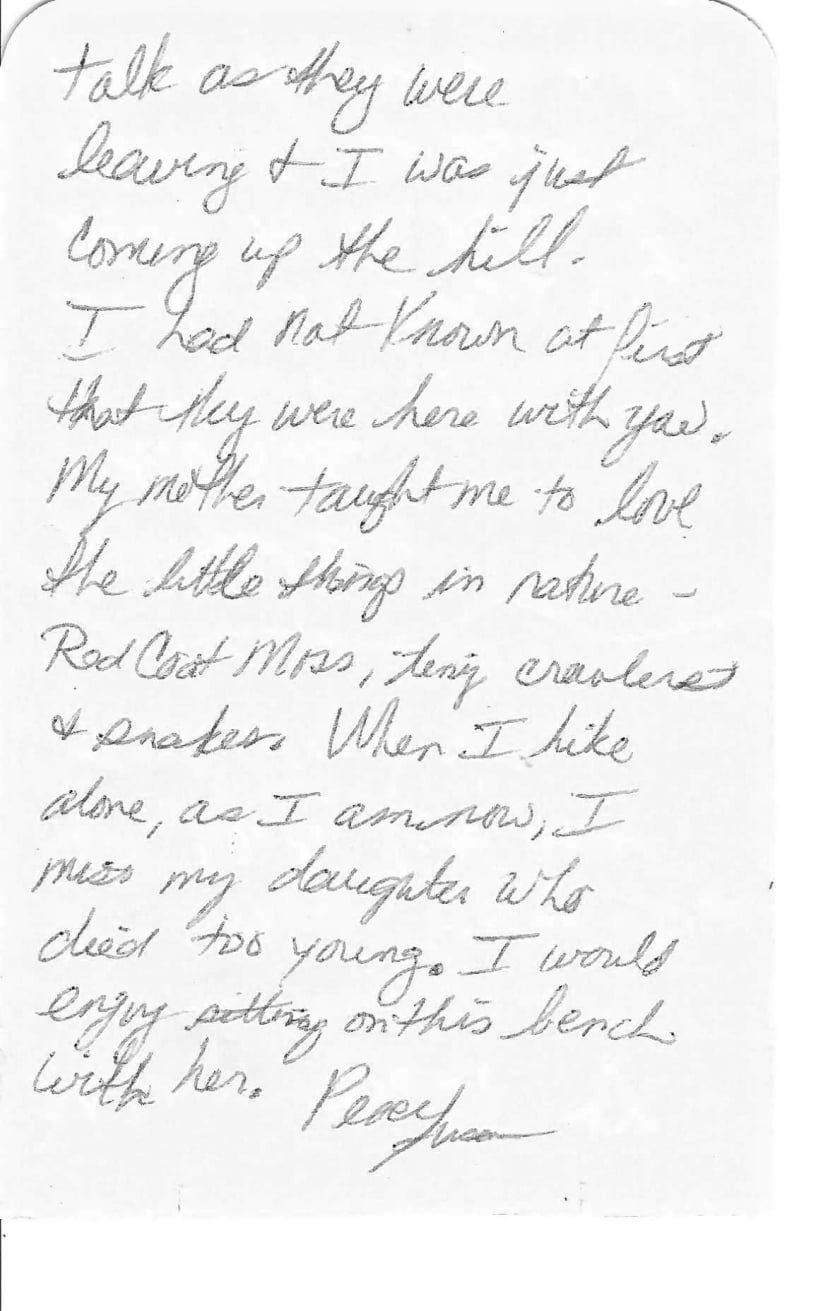 talk as they were
leaving & I was just
coming up the hill.
I had not known at first
that they were here with you.
My mother taught me to love
the little things in nature -
Red Coat Moss, teny crawlers
& snakes. When I hike
alone, as I am now, I
miss my daughter who
died too young. I would
enjoy sitting on this bench
with her. Peace
Susan